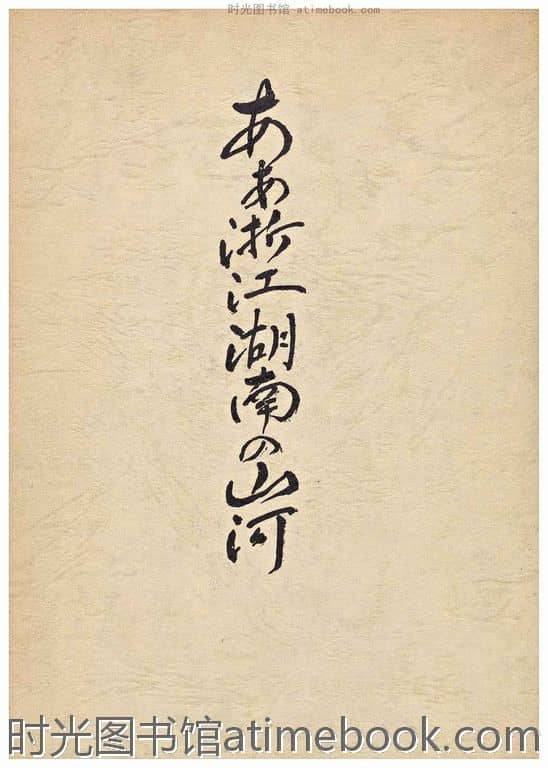 时光图书馆 - atimebook.com
ああ浙江湖南の山河
时光图书馆atimebook.com